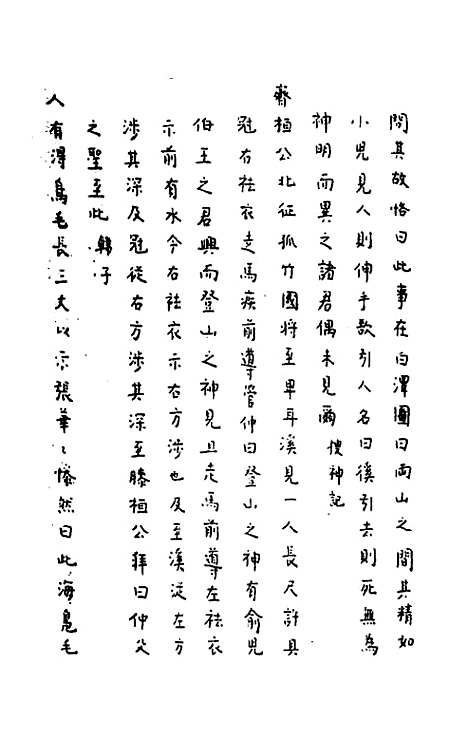 問其故恪曰此事在白澤圖曰兩山之間其精如
小兒見人則伸手欲引人名曰徯引去則死無為
神明而異之諸君偶未見爾 搜神記
齊桓公北征孤竹國將至卑耳溪見一人長尺許具
冠右袪衣走馬疾前導管仲曰登山之神有俞兒
伯王之君興而登山之神見且走馬前導左袪衣
示前有水今右袪衣示右方涉也及至溪從左方
涉其深及冠從右方涉其深至膝桓公拜曰仲父
之聖至此 韓子
人有得鳥毛長三丈以示張華〻慘然曰此海鳧毛